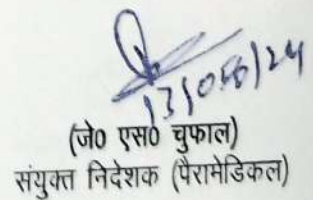 13/056/24
(जे0 एस0 चुफाल)
संयुक्त निदेशक (पैरामेडिकल)